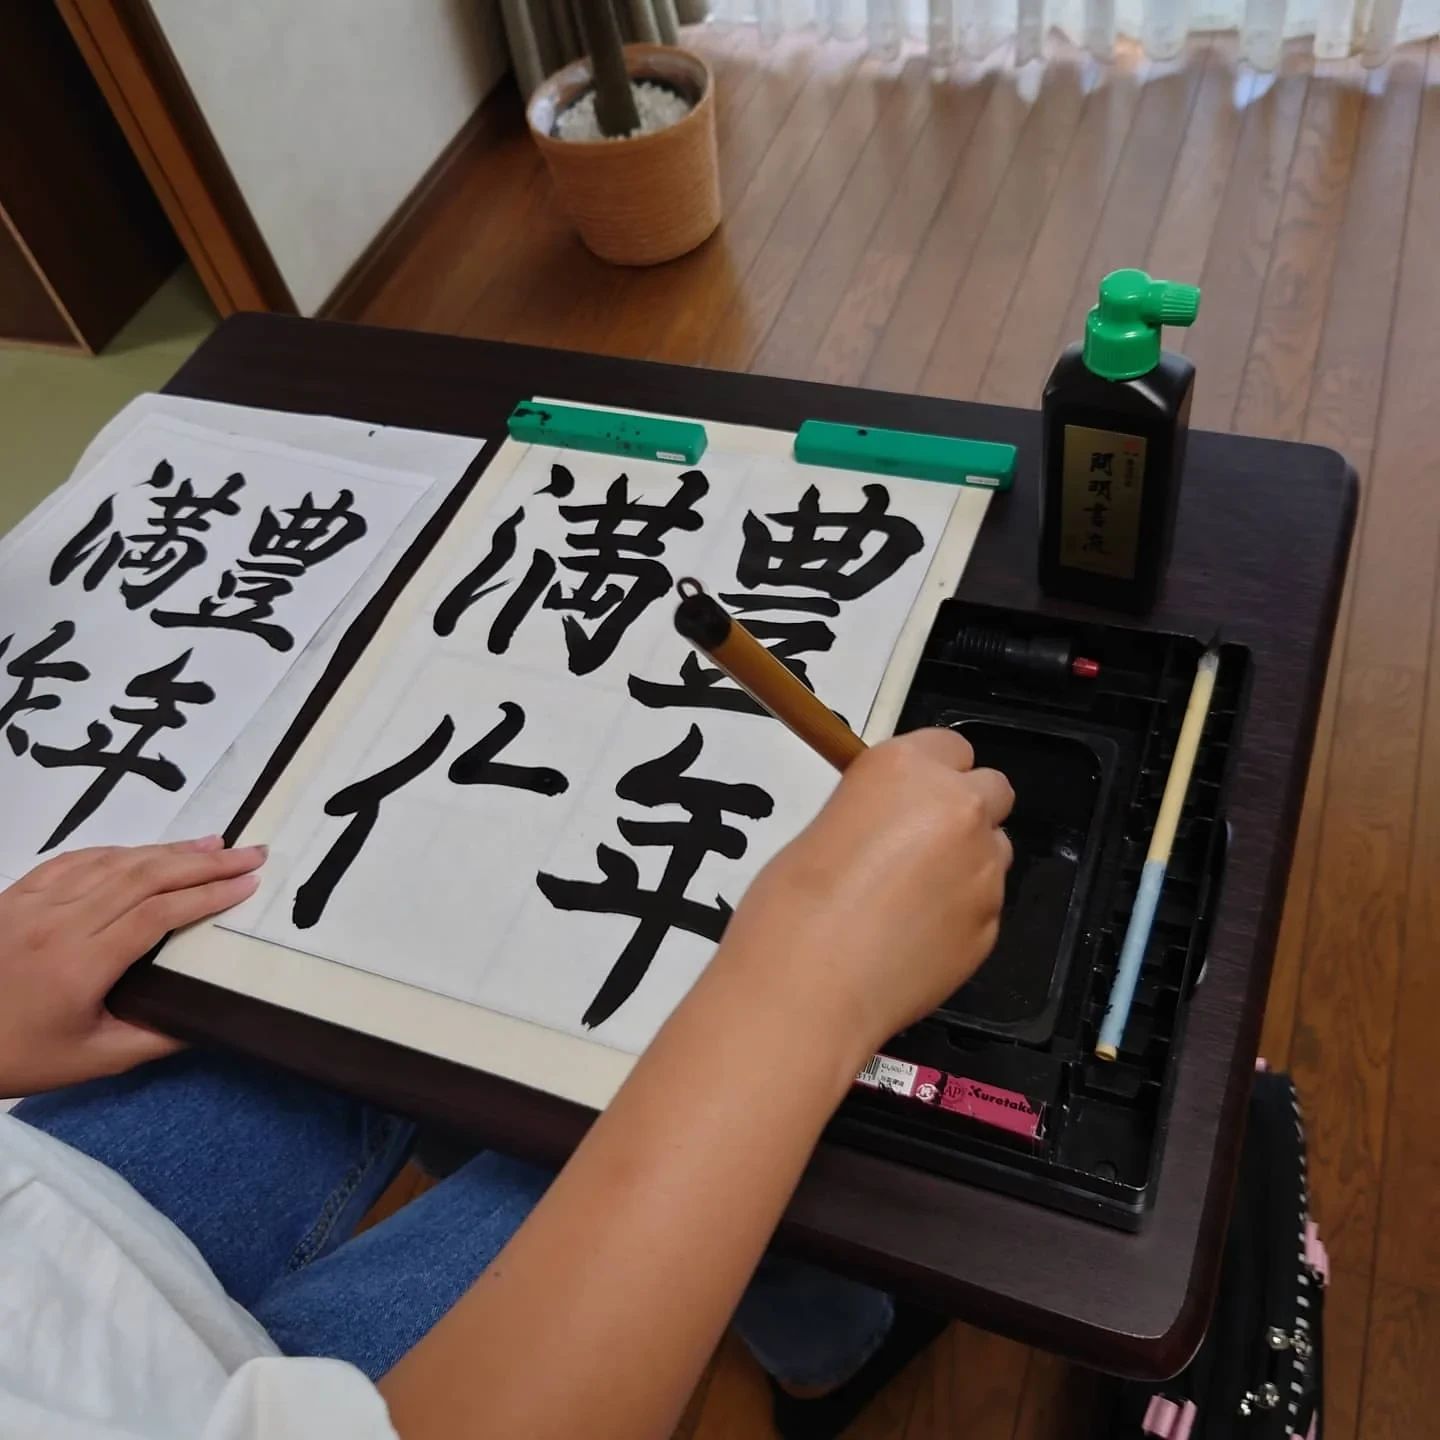 豊年
満作
豊年
満
開明書液
AP Kuretake